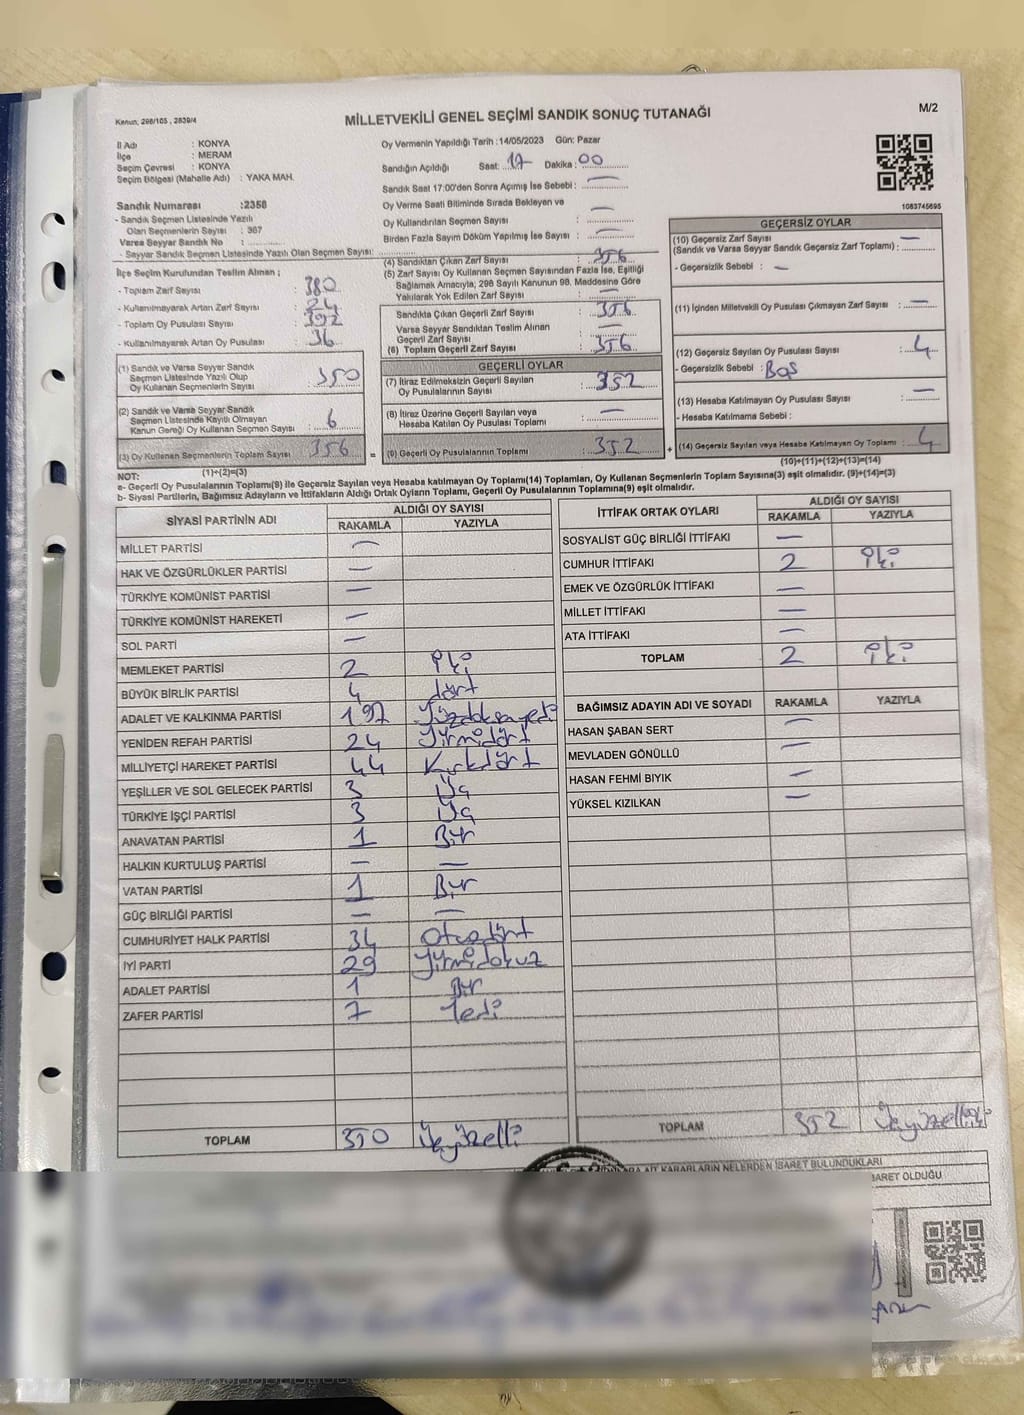 Kanun; 298/105 , 2839/4
MİLLETVEKİLİ GENEL SEÇİMİ SANDIK SONUÇ TUTANAĞI
M/2
İl Adı : KONYA
İlçe : MERAM
Seçim Çevresi : KONYA
Seçim Bölgesi (Mahalle Adı) : YAKA MAH.
Oy Vermenin Yapıldığı Tarih : 14/05/2023 Gün: Pazar
Sandığın Açıldığı Saat: 17 Dakika : 00
Sandık Saat 17:00'den Sonra Açımış İse Sebebi : —
Oy Verme Saati Bitiminde Sırada Bekleyen ve
Oy Kullandırılan Seçmen Sayısı : —
Birden Fazla Sayım Döküm Yapılmış İse Sayısı : —
1083745695
Sandık Numarası :2358
- Sandık Seçmen Listesinde Yazılı
Olan Seçmenlerin Sayısı : 367
Varsa Seyyar Sandık No :
- Sayyar Sandık Seçmen Listesinde Yazılı Olan Seçmen Sayısı:
İlçe Seçim Kurulundan Teslim Alınan ;
- Toplam Zarf Sayısı : 380
- Kullanılmayarak Artan Zarf Sayısı : 24
- Toplam Oy Pusulası Sayısı : 392
- Kullanılmayarak Artan Oy Pusulası : 36
(1) Sandık ve Varsa Seyyar Sandık
Seçmen Listesinde Yazılı Olup
Oy Kullanan Seçmenlerin Sayısı : 350
(2) Sandık ve Varsa Seyyar Sandık
Seçmen Listesinde Kayıtlı Olmayan
Kanun Gereği Oy Kullanan Seçmen Sayısı : 6
(3) Oy Kullanan Seçmenlerin Toplam Sayısı : 356
(1)+(2)=(3)
(4) Sandıktan Çıkan Zarf Sayısı : 356
(5) Zarf Sayısı Oy Kullanan Seçmen Sayısından Fazla İse, Eşitliği
Sağlamak Amacıyla, 298 Sayılı Kanunun 98. Maddesine Göre
Yakılarak Yok Edilen Zarf Sayısı : —
Sandıkta Çıkan Geçerli Zarf Sayısı : 356
Varsa Seyyar Sandıktan Teslim Alınan
Geçerli Zarf Sayısı : —
(6) Toplam Geçerli Zarf Sayısı : 356
GEÇERLİ OYLAR
(7) İtiraz Edilmeksizin Geçerli Sayılan
Oy Pusulasının Sayısı : 352
(8) İtiraz Üzerine Geçerli Sayılan veya
Hesaba Katılan Oy Pusulası Toplamı : —
= (9) Geçerli Oy Pusulalarının Toplamı : 352 +
GEÇERSİZ OYLAR
(10) Geçersiz Zarf Sayısı
(Sandık ve Varsa Seyyar Sandık Geçersiz Zarf Toplamı) : —
- Geçersizlik Sebebi : —
(11) İçinden Milletvekili Oy Pusulası Çıkmayan Zarf Sayısı : —
(12) Geçersiz Sayılan Oy Pusulası Sayısı : 4
- Geçersizlik Sebebi : Boş
(13) Hesaba Katılmayan Oy Pusulası Sayısı : —
- Hesaba Katılmama Sebebi :
(14) Geçersiz Sayılan veya Hesaba Katılmayan Oy Toplamı : 4
(10)+(11)+(12)+(13)=(14)
NOT:
a- Geçerli Oy Pusulalarının Toplamı(9) ile Geçersiz Sayılan veya Hesaba katılmayan Oy Toplamı(14) Toplamları, Oy Kullanan Seçmenlerin Toplam Sayısına(3) eşit olmalıdır. (9)+(14)=(3)
b- Siyasi Partilerin, Bağımsız Adayların ve İttifakların Aldığı Ortak Oyların Toplamı, Geçerli Oy Pusulalarının Toplamına(9) eşit olmalıdır.
SİYASİ PARTİNİN ADI ALDIĞI OY SAYISI
RAKAMLA YAZIYLA
MİLLET PARTİSİ —
HAK VE ÖZGÜRLÜKLER PARTİSİ —
TÜRKİYE KOMÜNİST PARTİSİ —
TÜRKİYE KOMÜNİST HAREKETİ —
SOL PARTİ —
MEMLEKET PARTİSİ 2 İki
BÜYÜK BİRLİK PARTİSİ 4 dört
ADALET VE KALKINMA PARTİSİ 197 Yüzdoksanyedi
YENİDEN REFAH PARTİSİ 24 Yirmidört
MİLLİYETÇİ HAREKET PARTİSİ 44 Kırkdört
YEŞİLLER VE SOL GELECEK PARTİSİ 3 Üç
TÜRKİYE İŞÇİ PARTİSİ 3 Üç
ANAVATAN PARTİSİ 1 Bir
HALKIN KURTULUŞ PARTİSİ — —
VATAN PARTİSİ 1 Bir
GÜÇ BİRLİĞİ PARTİSİ — —
CUMHURİYET HALK PARTİSİ 34 Otuzdört
İYİ PARTİ 29 Yirmidokuz
ADALET PARTİSİ 1 Bir
ZAFER PARTİSİ 7 Yedi
TOPLAM 350 Üçyüzelli
İTTİFAK ORTAK OYLARI ALDIĞI OY SAYISI
RAKAMLA YAZIYLA
SOSYALİST GÜÇ BİRLİĞİ İTTİFAKI —
CUMHUR İTTİFAKI 2 İki
EMEK VE ÖZGÜRLÜK İTTİFAKI —
MİLLET İTTİFAKI —
ATA İTTİFAKI —
TOPLAM 2 İki
BAĞIMSIZ ADAYIN ADI VE SOYADI RAKAMLA YAZIYLA
HASAN ŞABAN SERT —
MEVLADEN GÖNÜLLÜ —
HASAN FEHMİ BIYIK —
YÜKSEL KIZILKAN —
TOPLAM 352 Üçyüzelliiki
KARARLARIN NELERDEN İBARET BULUNDUKLARI
BARET OLDUĞU